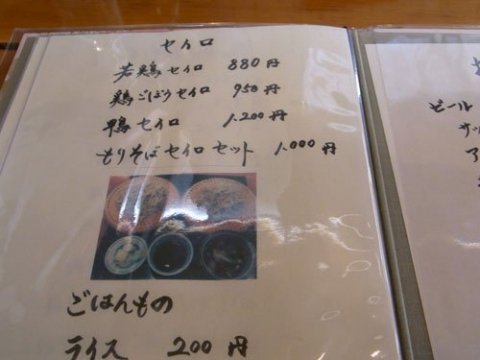 セイロ
若鶏セイロ 880円
鶏ごぼうセイロ 950円
鴨セイロ 1,200円
もりそばセイロセット 1,000円
ごはんもの
ライス 200円
ビール